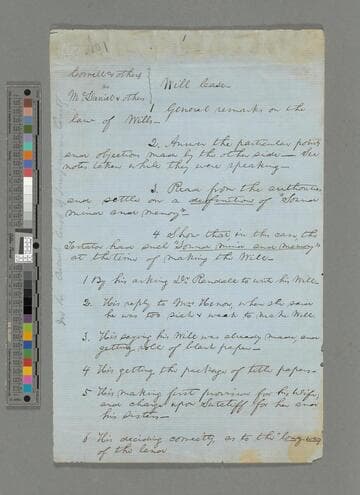 Cowell & others
vs
McDaniel & others
Will Case
1 General remarks on the
law of Wills
2. Answer the particular points
and objection made by the other side — See
notes taken while they were speaking —
3. Read from the authorities
and settle on a definition of "Sound
mind and memory"
4 Show that in this case the
Testator had such "Sound mind and memory"
at the time of making the Will
1 By his asking Dr Randall to write his Will
2. His reply to Mrs Henon, when she said
he was too sick & weak to make Will
3. His saying his Will was already made, and
getting roll of blank paper —
4 His getting the package of title papers —
5 His making first provision for his Wife,
and charge upon Sutcliff for her and
his sisters —
6 His deciding correctly as to the
of the land